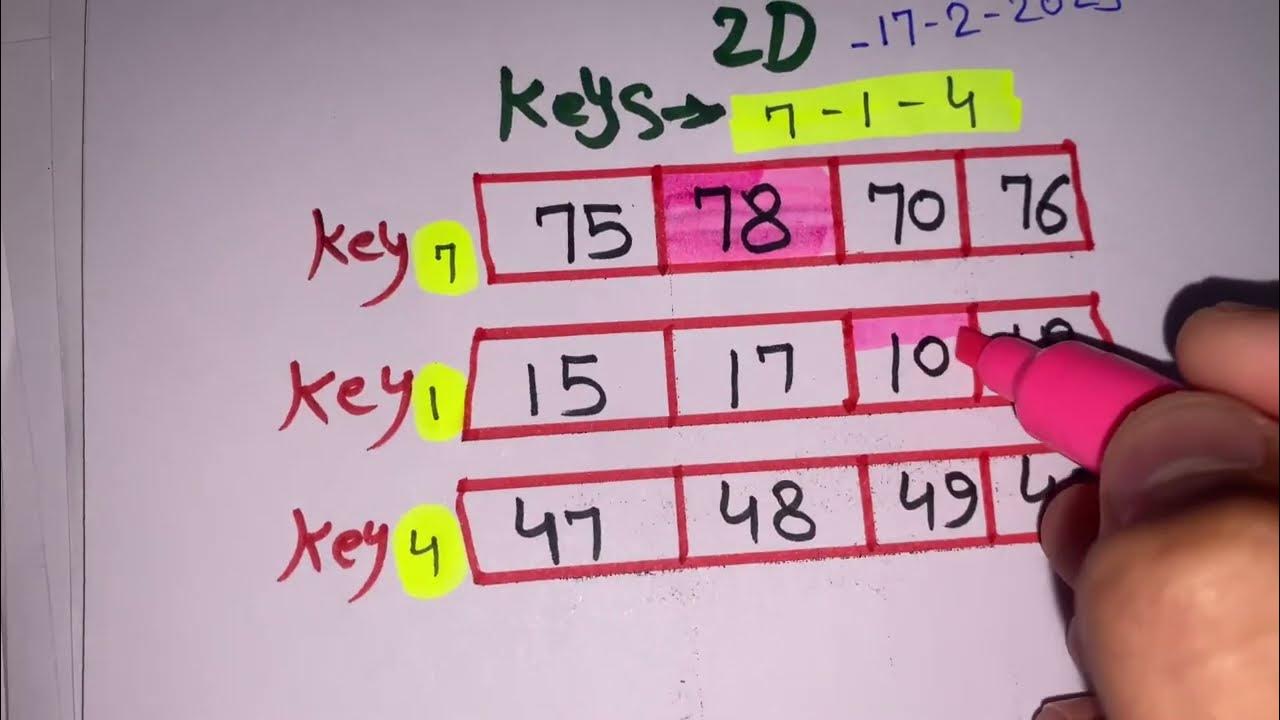 2D -17-2-2025
Keys→ 7-1-4
Key 7 75 78 70 76
Key 1 15 17 10
Key 4 47 48 49